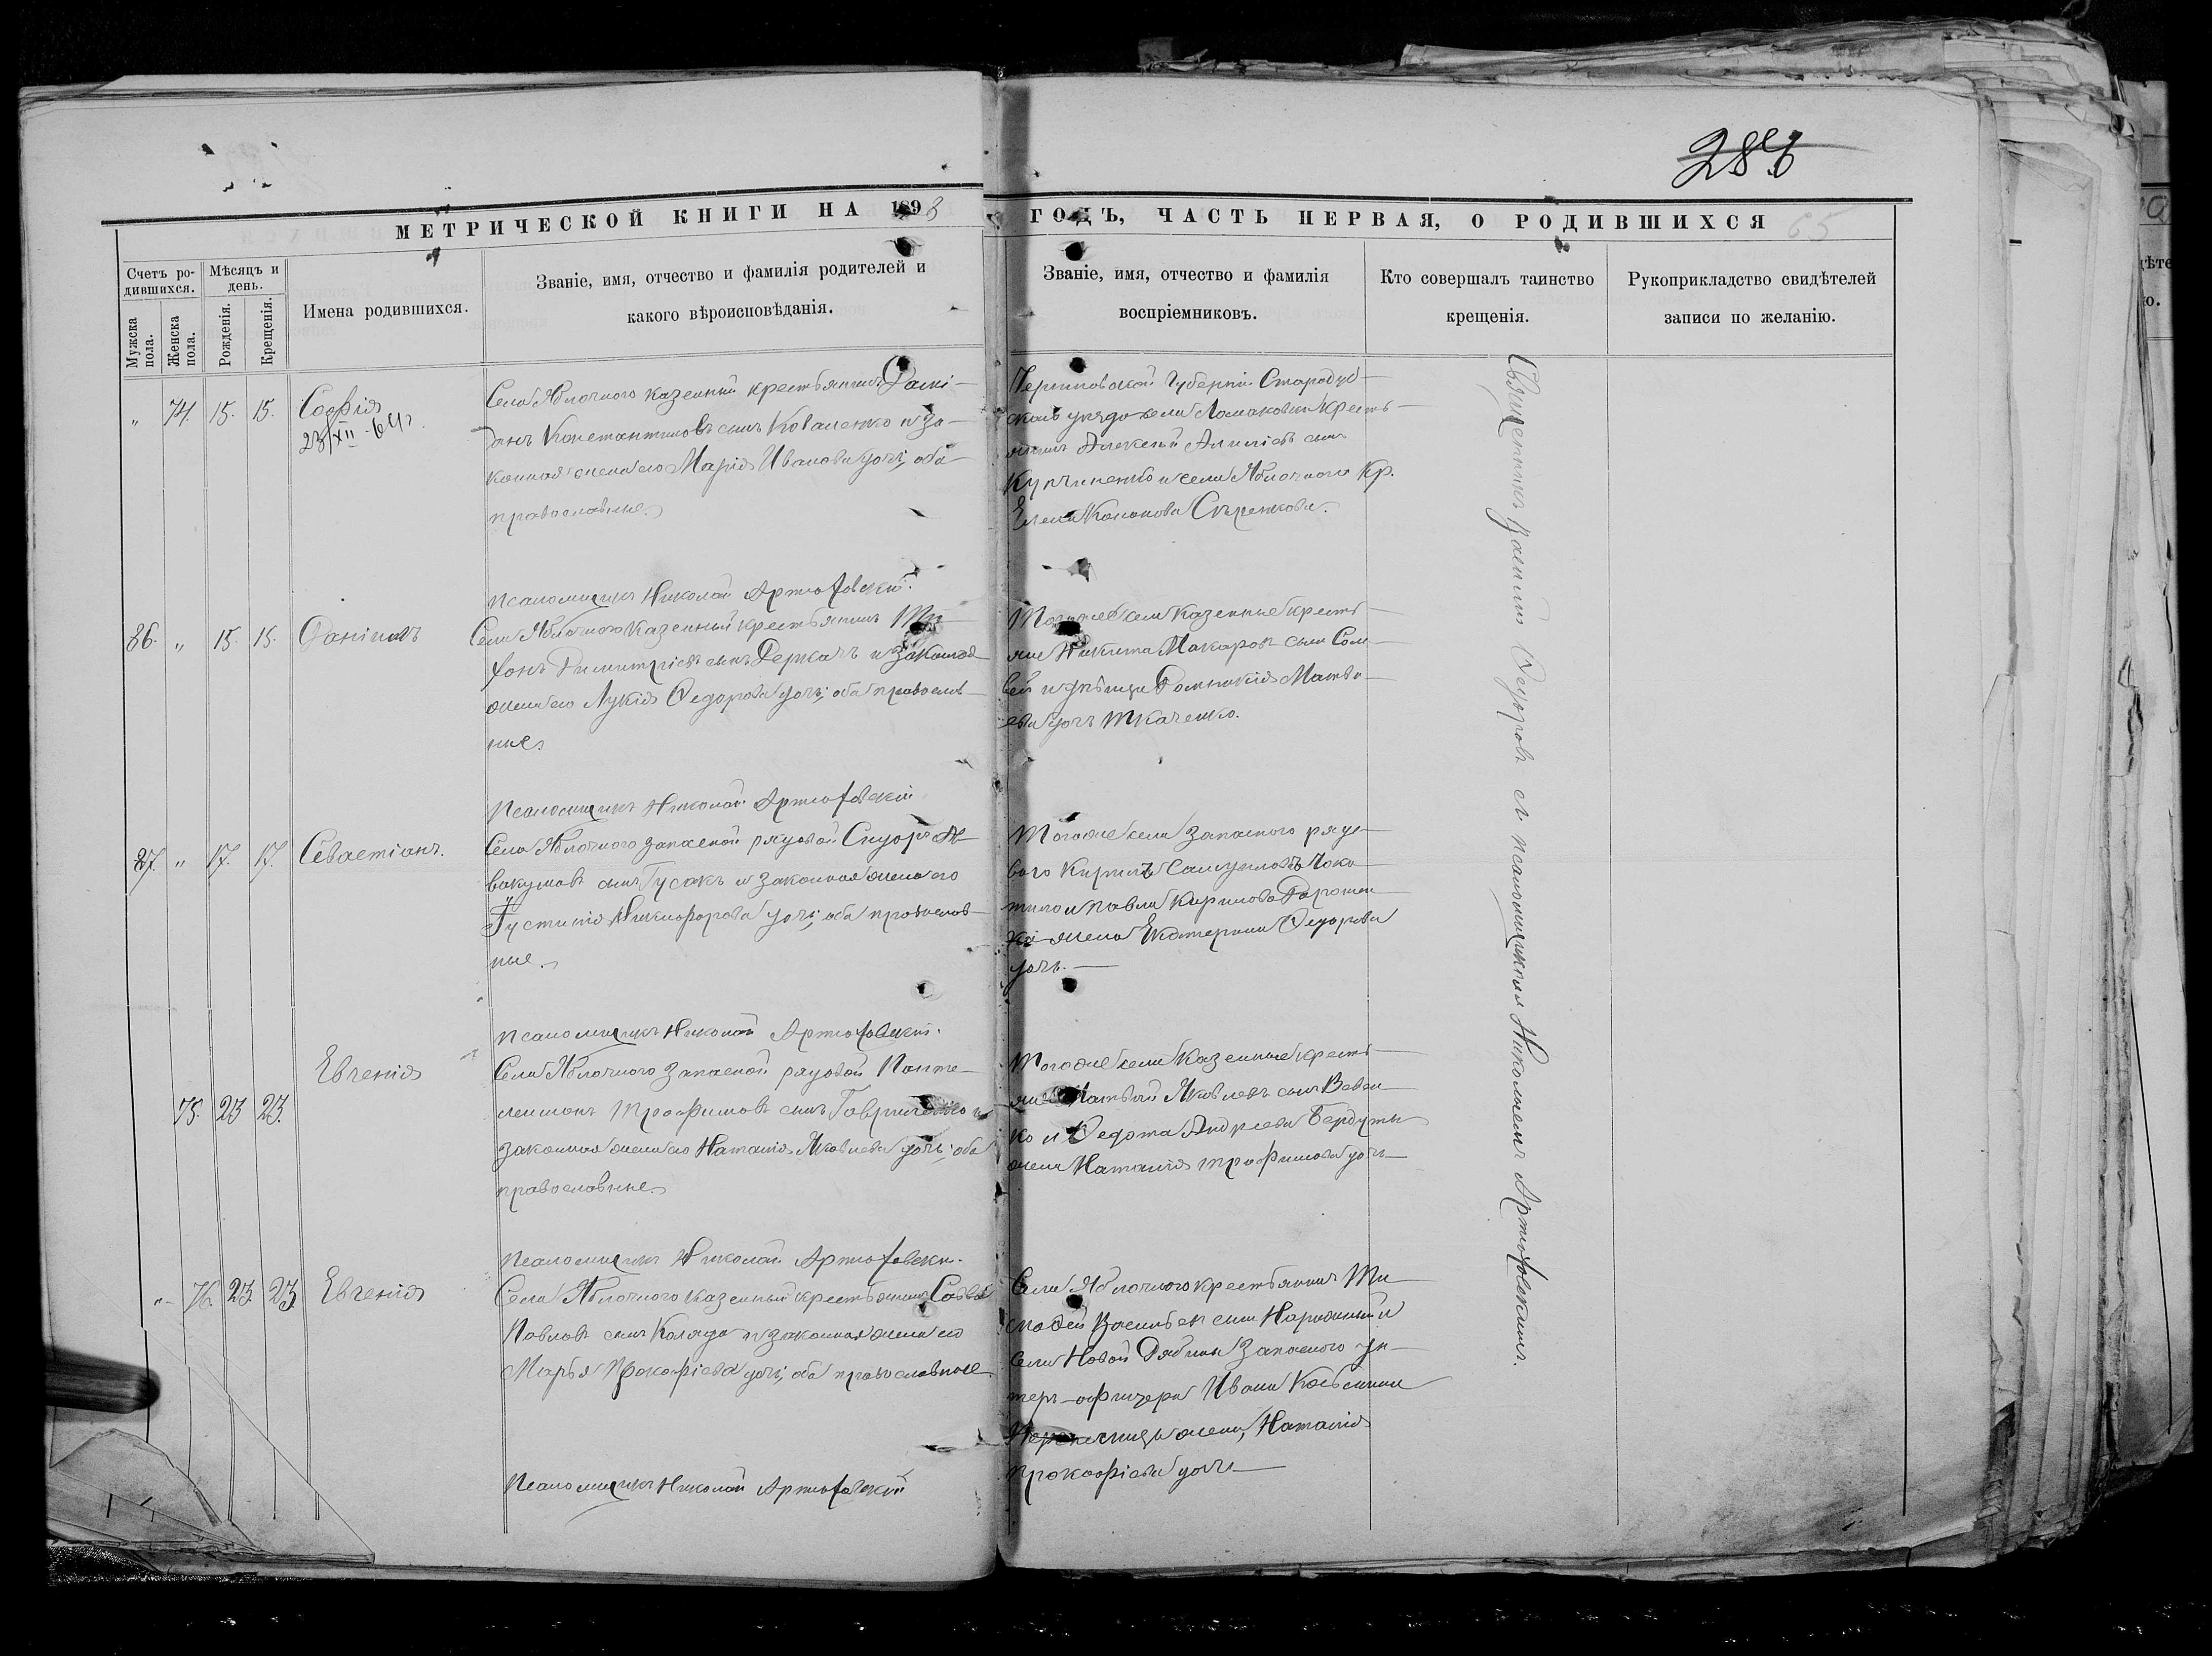 283
65
МЕТРИЧЕСКОЙ КНИГИ НА 1898 ГОДЪ, ЧАСТЬ ПЕРВАЯ, О РОДИВШИХСЯ
Счетъ ро-
дившихся.
Мужска
пола.
Женска
пола.
Мѣсяцъ и
день.
Рожденія.
Крещенія.
Имена родившихся.
Званіе, имя, отчество и фамилія родителей и
какого вѣроисповѣданія.
Званіе, имя, отчество и фамилія
воспріемниковъ.
Кто совершалъ таинство
крещенія.
Рукоприкладство свидѣтелей
записи по желанію.
" 74. 15. 15. Софія
23/XII-64г.
Села Яблочного казенный крестьянинъ
данъ Константиновъ сынъ Коваленко и за-
конная жена его Марія Иванова дочь, оба
православные.
Черниговской Губерніи Стародуб-
скаго уѣзда села Ломаковки кресть-
янинъ Алексѣй сынъ
и села Яблочного Кр.
Елена Кононова
Псаломщикъ Николай Артюховскій.
86. " 15. 15. Даніилъ
Села Яблочного казенный крестьянинъ Три-
фонъ Димитріевъ сынъ Деркачъ и законная
жена его Лукія Ѳедорова дочь; оба православ-
ные.
Тогоже села казенные кресть-
яне Никита Макаровъ сынъ Сом-
и дѣвица Домникія Матвѣ-
ева дочь Ткаченко.
Псаломщикъ Николай Артюховскій
87. " 17. 17. Севастіанъ.
Села Яблочного запасной рядовой Сидоръ Ав-
вакумовъ сынъ Гусакъ и законная жена его
Іустинія Никифорова дочь; оба православ-
ные.
Тогоже села запасного рядо-
вого Кирилъ Самуиловъ
и Павла Кирилова
жена Екатерина Ѳедорова
дочь.
Псаломщикъ Николай Артюховскій.
75. 23 23. Евгенія
Села Яблочного запасной рядовой Панте-
леимонъ Трофимовъ сынъ Гавриленко и
законная жена его Наталія Яковлева дочь; оба
православные.
Тогоже села казенные кресть-
яне Матвѣй Яковлевъ сынъ
ко и Ѳедота Андреева
жена Наталія Трофимова дочь
Псаломщикъ Николай Артюховскій.
" 76. 23. 23. Евгенія
Села Яблочного казенный крестьянинъ Савва
Павловъ сынъ Коляда и законная жена его
Марья Прокофіева дочь; оба православные.
Села Яблочного крестьянинъ Ти-
моѳей Васильевъ сынъ и
села Новой Рябины запасного ун-
теръ-офицера Ивана Косьмина
жена, Наталія
Прокофіева дочь
Псаломщикъ Николай Артюховскій
Священникъ Ѳедоровъ съ псаломщикомъ Николаемъ Артюховскимъ.